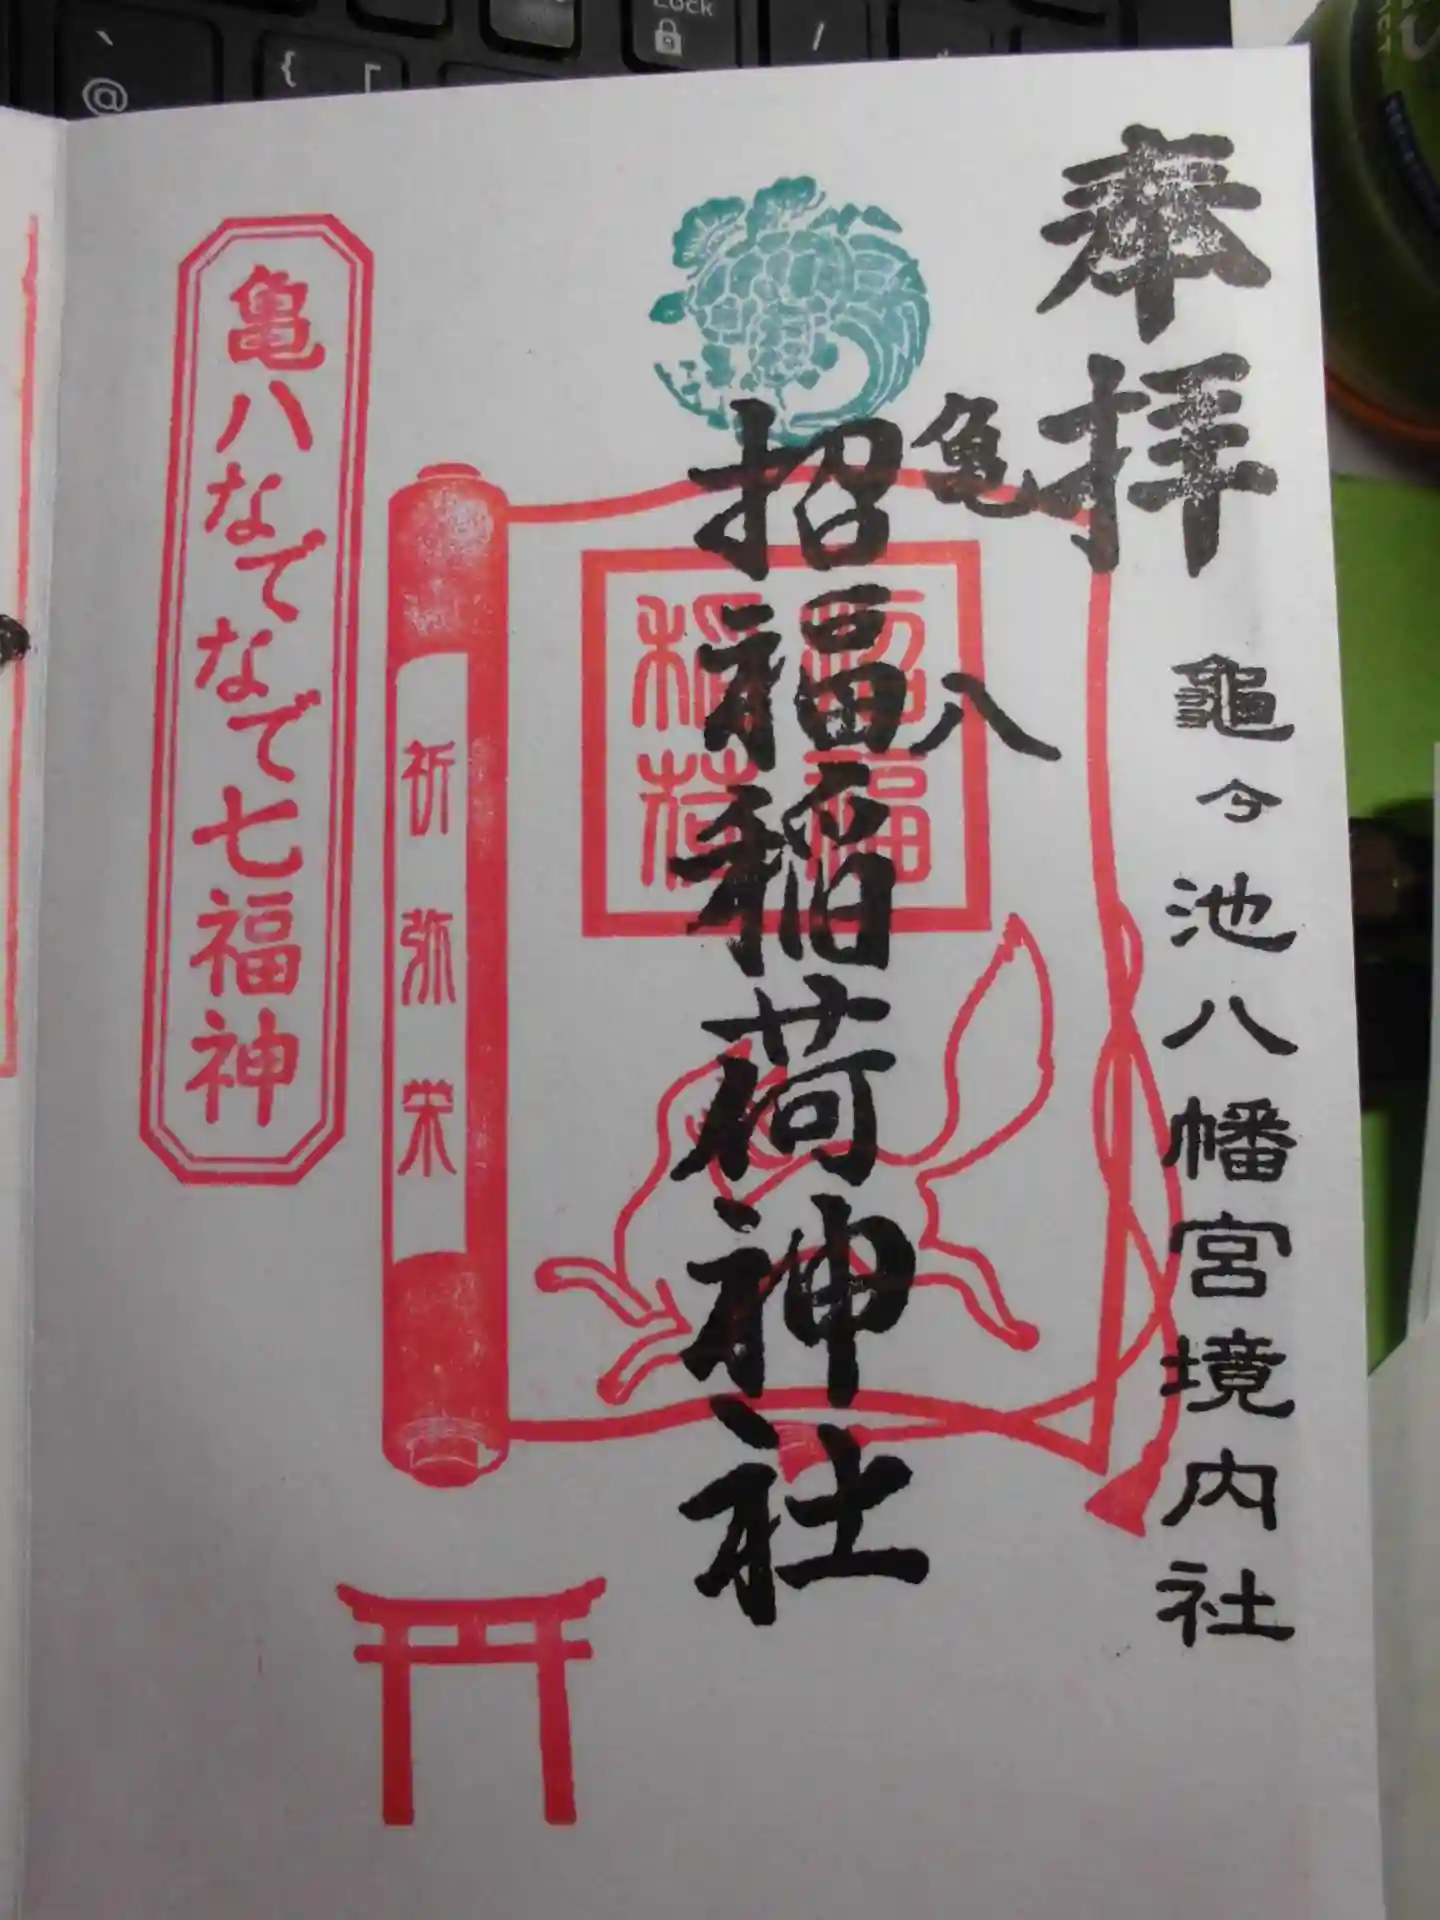 奉拝
龜ケ池八幡宮境内社
亀八
招福稲荷神社
招福
稲荷
祈弥栄
亀八なでなで七福神
Lock
@
{
[
/